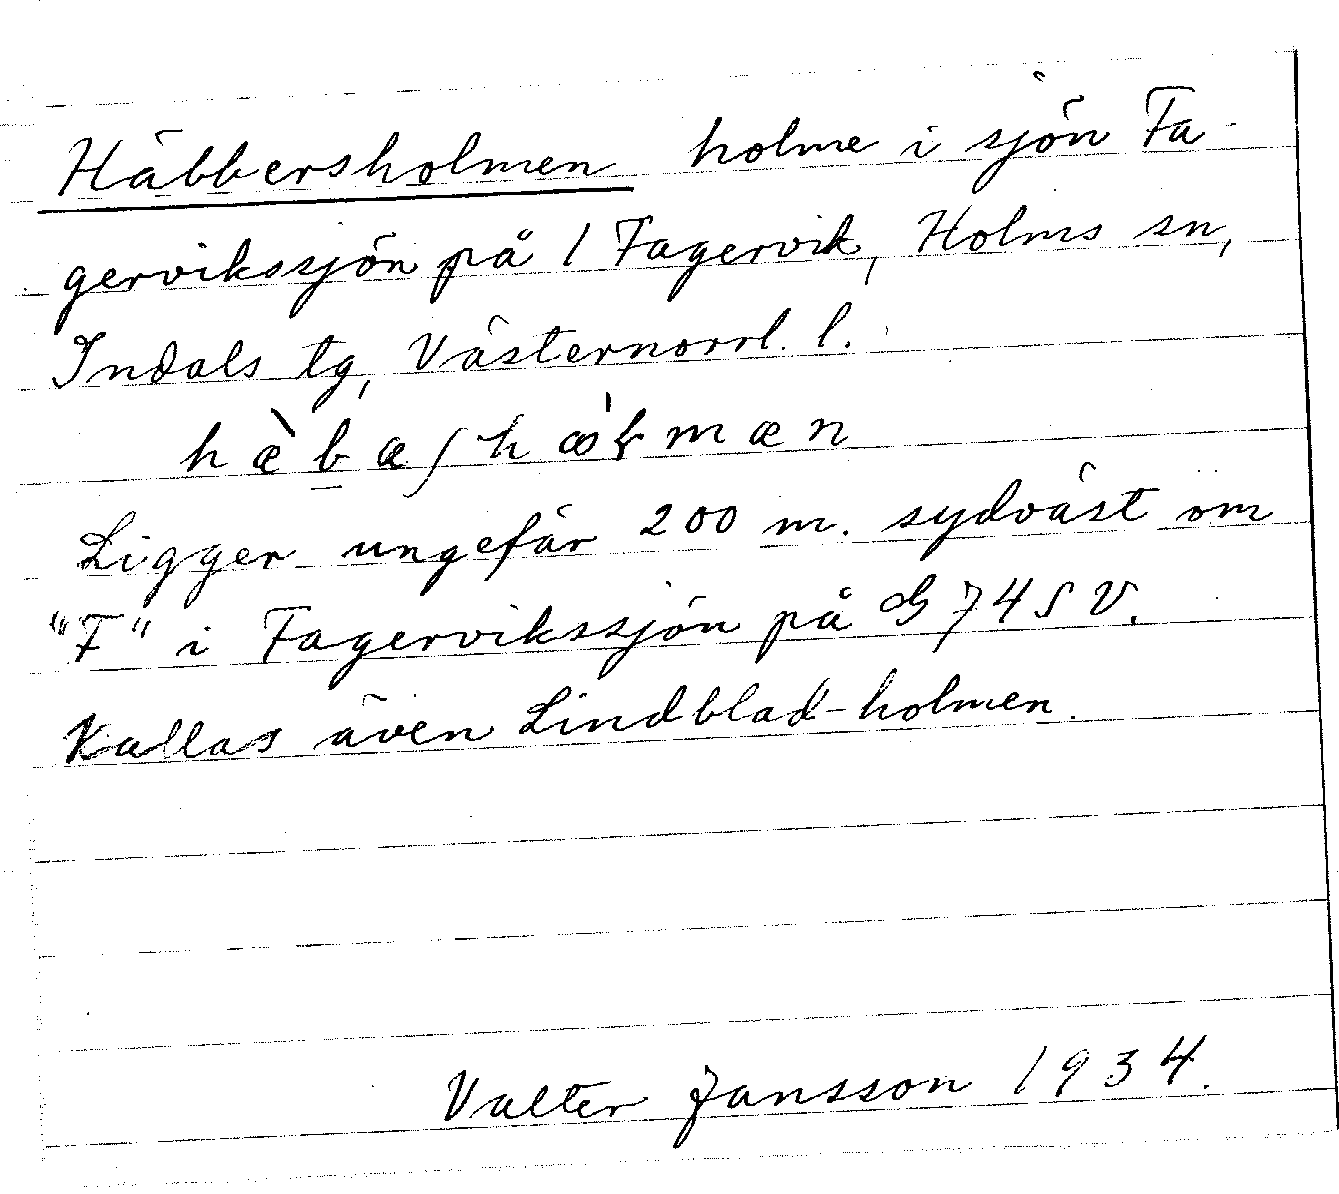 Häbbersholmen holme i sjön Fa-
gervikssjön på 1 Fagervik, Holms sn,
Indals tg, Västernorrl. l.
hæ̀bæʃhòɽmæn
Ligger ungefär 200 m. sydväst om
"F" i Fagervikssjön på G 74 SV.
Kallas även Lindblad-holmen.
Valter Jansson 1934.